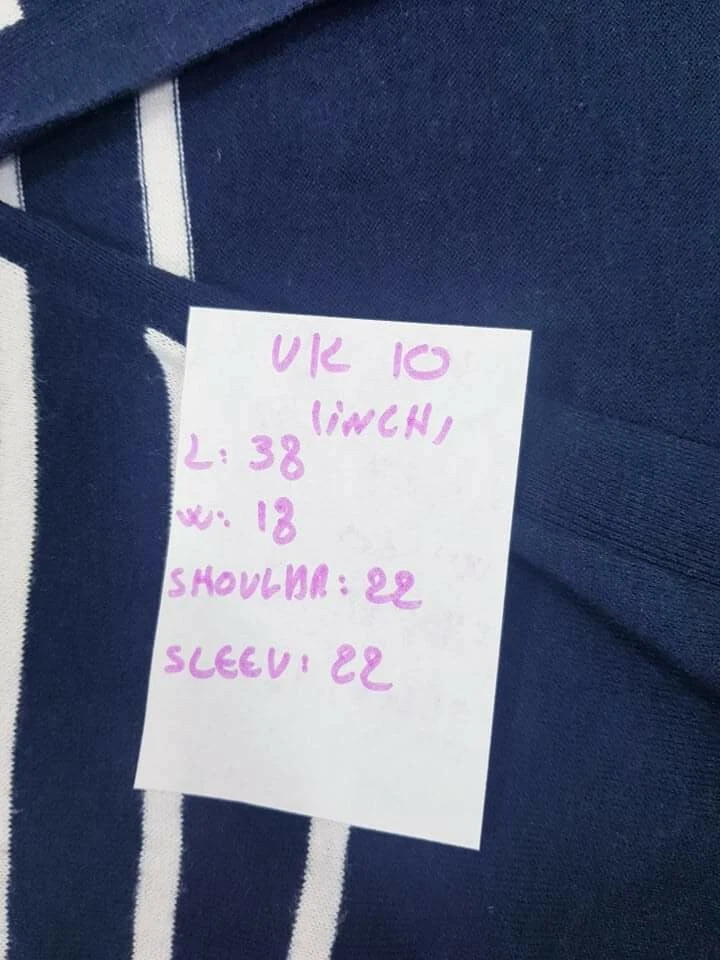 UK 10
(iNCH)
L: 38
W: 18
SHOULDR: 22
SLEEV: 22